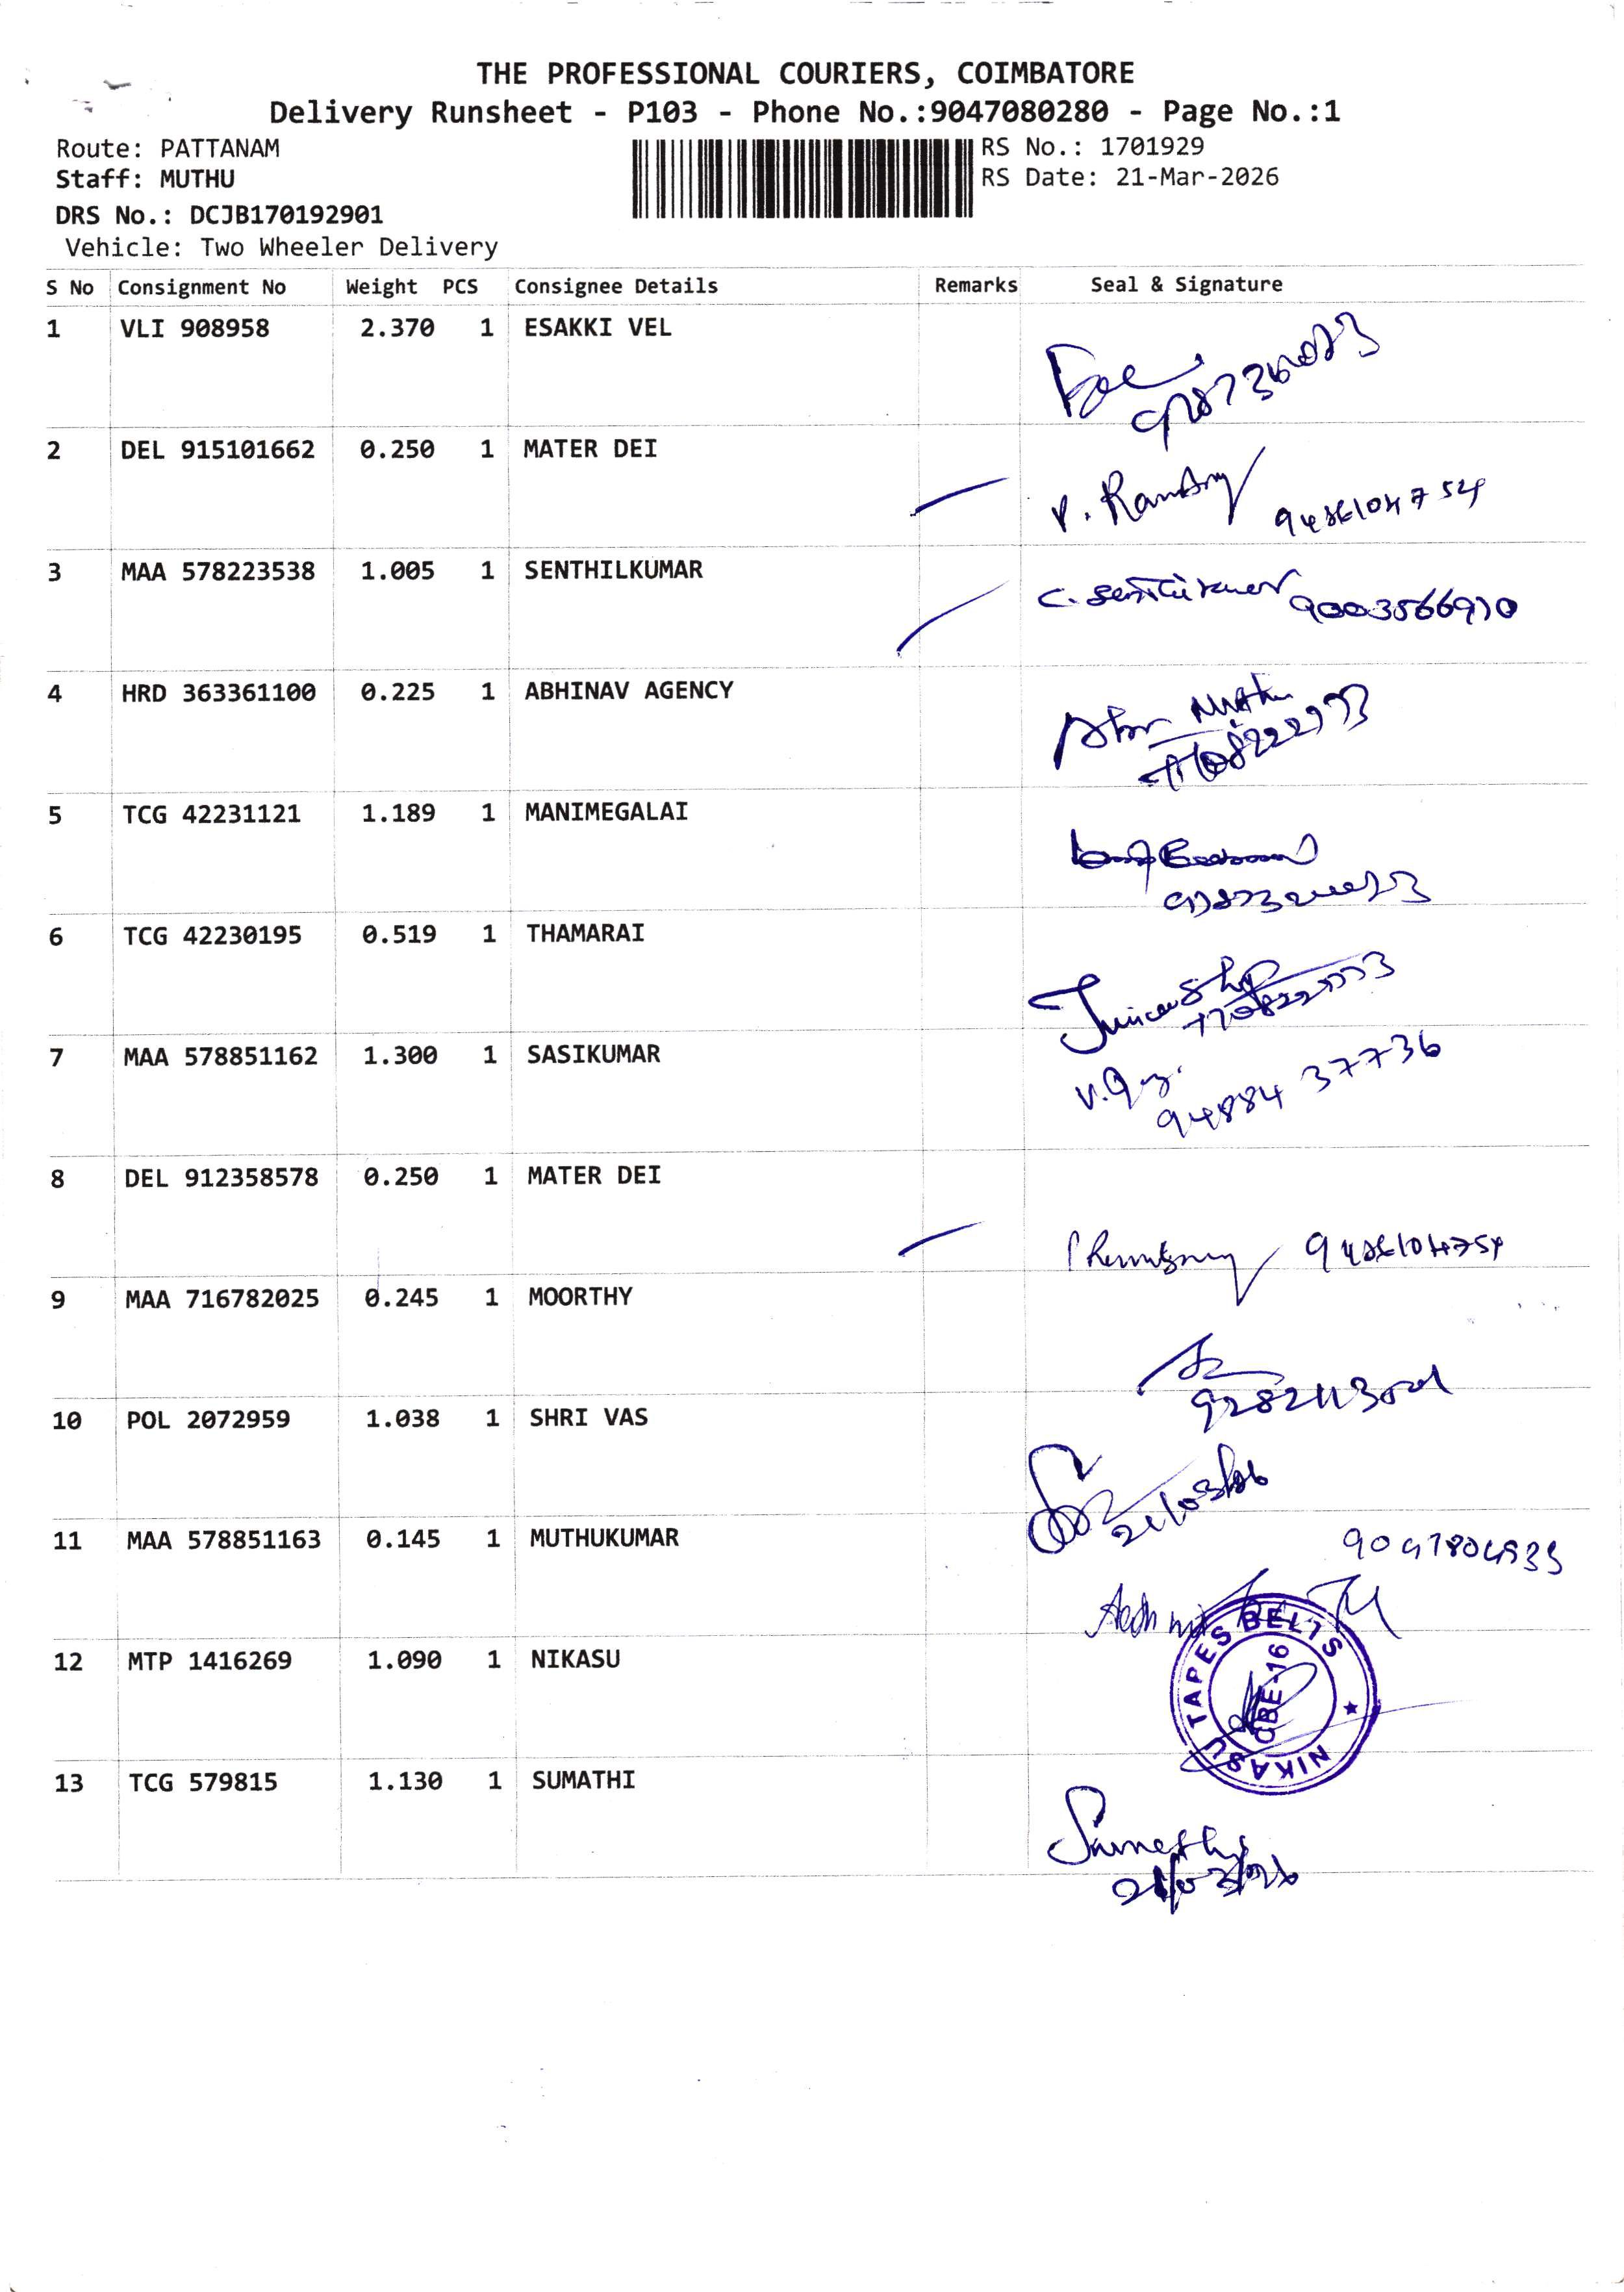 THE PROFESSIONAL COURIERS, COIMBATORE
Delivery Runsheet - P103 - Phone No.:9047080280 - Page No.:1
Route: PATTANAM
RS No.: 1701929
Staff: MUTHU
RS Date: 21-Mar-2026
DRS No.: DCJB170192901
Vehicle: Two Wheeler Delivery
S No Consignment No Weight PCS Consignee Details Remarks Seal & Signature
1 VLI 908958 2.370 1 ESAKKI VEL
2 DEL 915101662 0.250 1 MATER DEI
3 MAA 578223538 1.005 1 SENTHILKUMAR
4 HRD 363361100 0.225 1 ABHINAV AGENCY
5 TCG 42231121 1.189 1 MANIMEGALAI
6 TCG 42230195 0.519 1 THAMARAI
7 MAA 578851162 1.300 1 SASIKUMAR
94884 37736
8 DEL 912358578 0.250 1 MATER DEI
9 MAA 716782025 0.245 1 MOORTHY
10 POL 2072959 1.038 1 SHRI VAS
11 MAA 578851163 0.145 1 MUTHUKUMAR
12 MTP 1416269 1.090 1 NIKASU
NIKASU TAPES BELTS
CBE-16
13 TCG 579815 1.130 1 SUMATHI
Sumathy